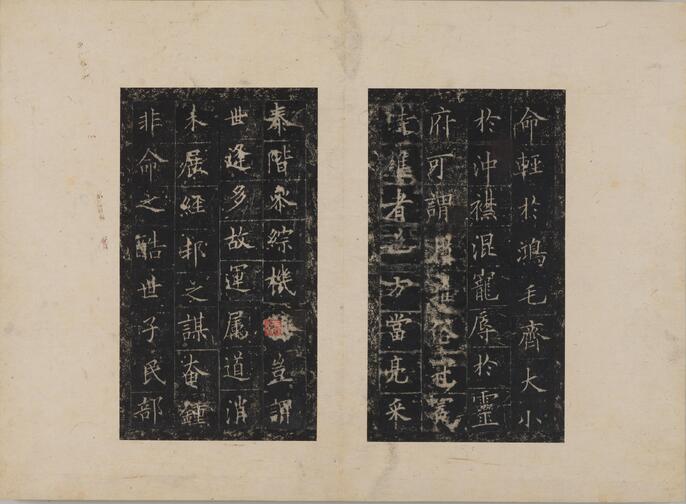 命輕於鴻毛齊大小
於沖襟混寵辱於靈
府可謂
者方當亮采
泰階永綜機豈謂
世逢多故運属道消
未展經邦之謀奄鍾
非命之酷世子民部